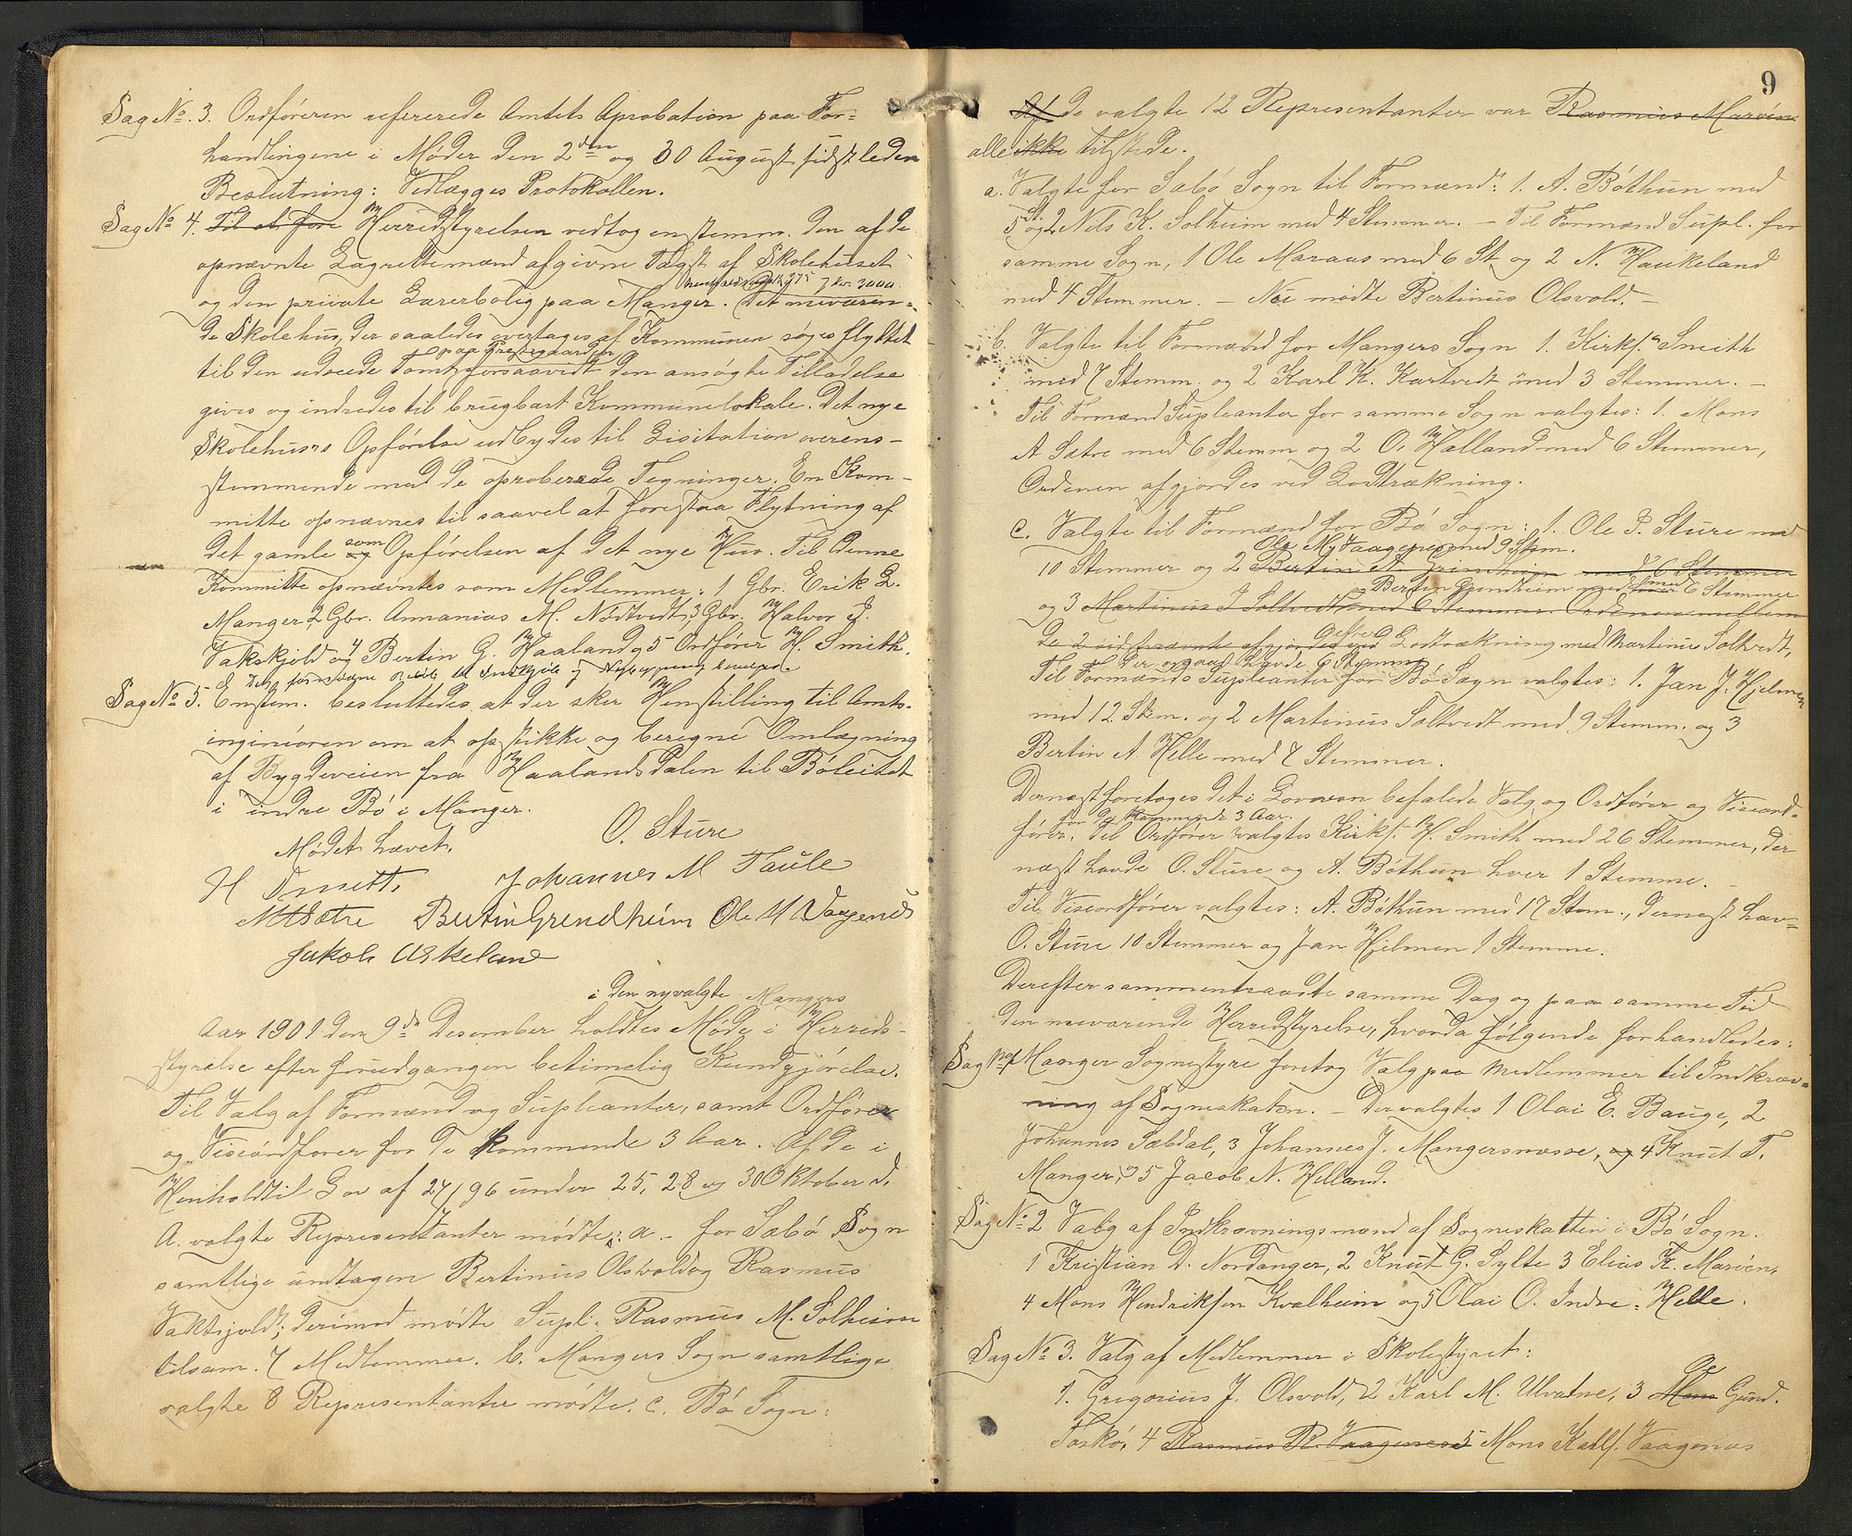 Sag No. 3. Ordføreren refererede Amtets Aprobation paa For-
handlingene i Møder den 2den og 30 August sidstleden
Beslutning: Vedlægges Protokollen.
Sag No 4. Til at føre Herredstyrelsen vedtog enstemm. den af de
opnævnte Lagrettemænd afgivne Tagst af Skolehuset
og den private Lærerbolig paa Manger. Det nuværen-
de Skolehus, der saaledes overtages af Kommunen søges flyttet
paa Prestegaarden
til den udseede Tomt forsaavidt den ansøgte Tilladelse
gives og indredes til brugbart Kommunelokale. Det nye
Skolehuses Opførelse udbydes til Lisitation overens-
stemmende med de aproberede Tegninger. En Kom-
mitte opnævnes til saavel at forestaa Flytning af
det gamle og som Opførelsen af det nye Hus. Til denne
Kommitte opnævntes som Medlemmer: 1 Gbr. Erik L.
Manger, 2 Gbr. Annanias M. Nistvedt, 3 Gbr. Halvor E.
Vakskjold og 4 Bertin G. Haaland, 5 Ordfører H. Smith.
Sag No 5. Enstem. besluttedes, at der sker Henstilling til Amts-
ingeniøren om at opstikke og beregne Omlægning
af Bygdeveien fra Haalandsdalen til Bøleitet
i indre Bø i Manger.
Mødet hævet.
O. Sture
H Smith
Johannes M Taule
M A Sætre Bertin Grendheim Ole M Vaagenes
Jakob Askeland
i den nyvalgte Mangers
Aar 1901 den 9de Desember holdtes Møde i Herreds-
styrelse efter forudgangen betimelig Kundgjørelse.
Til Valg af Formænd og Supleanter, samt Ordfører
og Viseordfører for de kommende 3 Aar. Af de i
Henhold til Lov af 27/7 96 under 25, 28 og 30 Oktober d.
A. valgte Representanter mødte: a - for Sæbø Sogn
samtlige undtagen Bertinius Olsvold og Rasmus
Vaksjold; derimod mødte Supl. Rasmus M. Solheim
tilsam. 7 Medlemmer. b. Mangers Sogn samtlige
valgte 8 Representanter mødte. c. Bø Sogn:
9
Af de valgte 12 Representanter var Rasmus Marøen
alle ikke tilstede.
a. Valgte for Sæbø Sogn til Formænd: 1. A. Bøthun med
5 St. og 2 Nils K. Solheim med 4 Stemmer. - Til Formænd Supl. for
samme Sogn, 1 Ole Maraas med 6 St. og 2 N. Haukeland
med 4 Stemmer. - Nu mødte Bertinius Olsvold. -
b. Valgte til Formænd for Mangers Sogn 1. Kirks. Smith
med 7 Stemm. og 2 Karl K. Kartvedt med 3 Stemmer. -
Til Formænd Supleanter for samme Sogn valgtes: 1. Mons
A Sætre med 6 Stemm og 2 O. Halland med 6 Stemmer,
Ordenen afgjordes ved Lodtrækning.
c. Valgte til Formænd for Bø Sogn: 1. Ole P. Sture med
Ole M. Vaagenes med 9 Stem.
10 Stemmer og 2 Bertin A. Grendheim med 6 Stemmer
Bertin Grendheim med 6 Stemmer
og 3 Martinus J Soltvedt med 6 Stemmer. Ordenen mellem
de 2 sidstnævnte afgjordes ved Lodtrækning med Martinus Soltvedt,
der ogsaa havde 6 Stemmer
Til Formænds Supleanter for Bø Sogn valgtes: 1. Jan J. Hjelmen
med 12 Stem. og 2 Martinus Soltvedt med 9 Stemm. og 3
Bertin A. Helle med 7 Stemmer.
Dernæst foretoges det i Loven befalede Valg og Ordfører og Viseord-
for de kommende 3 Aar.
fører. Til Ordfører valgtes Kirks. H. Smith med 26 Stemmer, der
næst havde O. Sture og A. Bøthun hver 1 Stemme.
Til Viseordfører valgtes: A. Bøthun med 17 Stem., dernæst hav-
O. Sture 10 Stemmer og Jan Hjelmen 1 Stemme.
Derefter sammentraadte samme Dag og paa samme Tid
den nuværende Herredstyrelse, hvorda følgende forhandledes:
Sag No 1 Manger Sognestyre foretog Valg paa Medlemmer til Indkræv-
ning af Sogneskaten. - Der valgtes 1 Olai E. Bauge, 2
Johannes Sæbdal, 3 Johannes J. Mangersnæsse, og 4 Knut T.
Manger, og 5 Jacob N. Helland.
Sag No 2 Valg af Indkrævningsmænd af Sogneskatten i Bø Sogn.
1 Kristian D. Nordanger, 2 Knut G. Sylte 3 Elias K. Marøen,
4 Mons Hendriksen Kvalheim og 5 Olai O. Indre-Helle.
Sag No 3. Valg af Medlemmer i Skolestyret:
1. Gregorius J. Olsvold, 2 Karl M. Ulvatne, 3 Mons Ole Gund.
Toskø, 4 Rasmus R. Vaagenes 5 Mons Kalls. Vaagenes